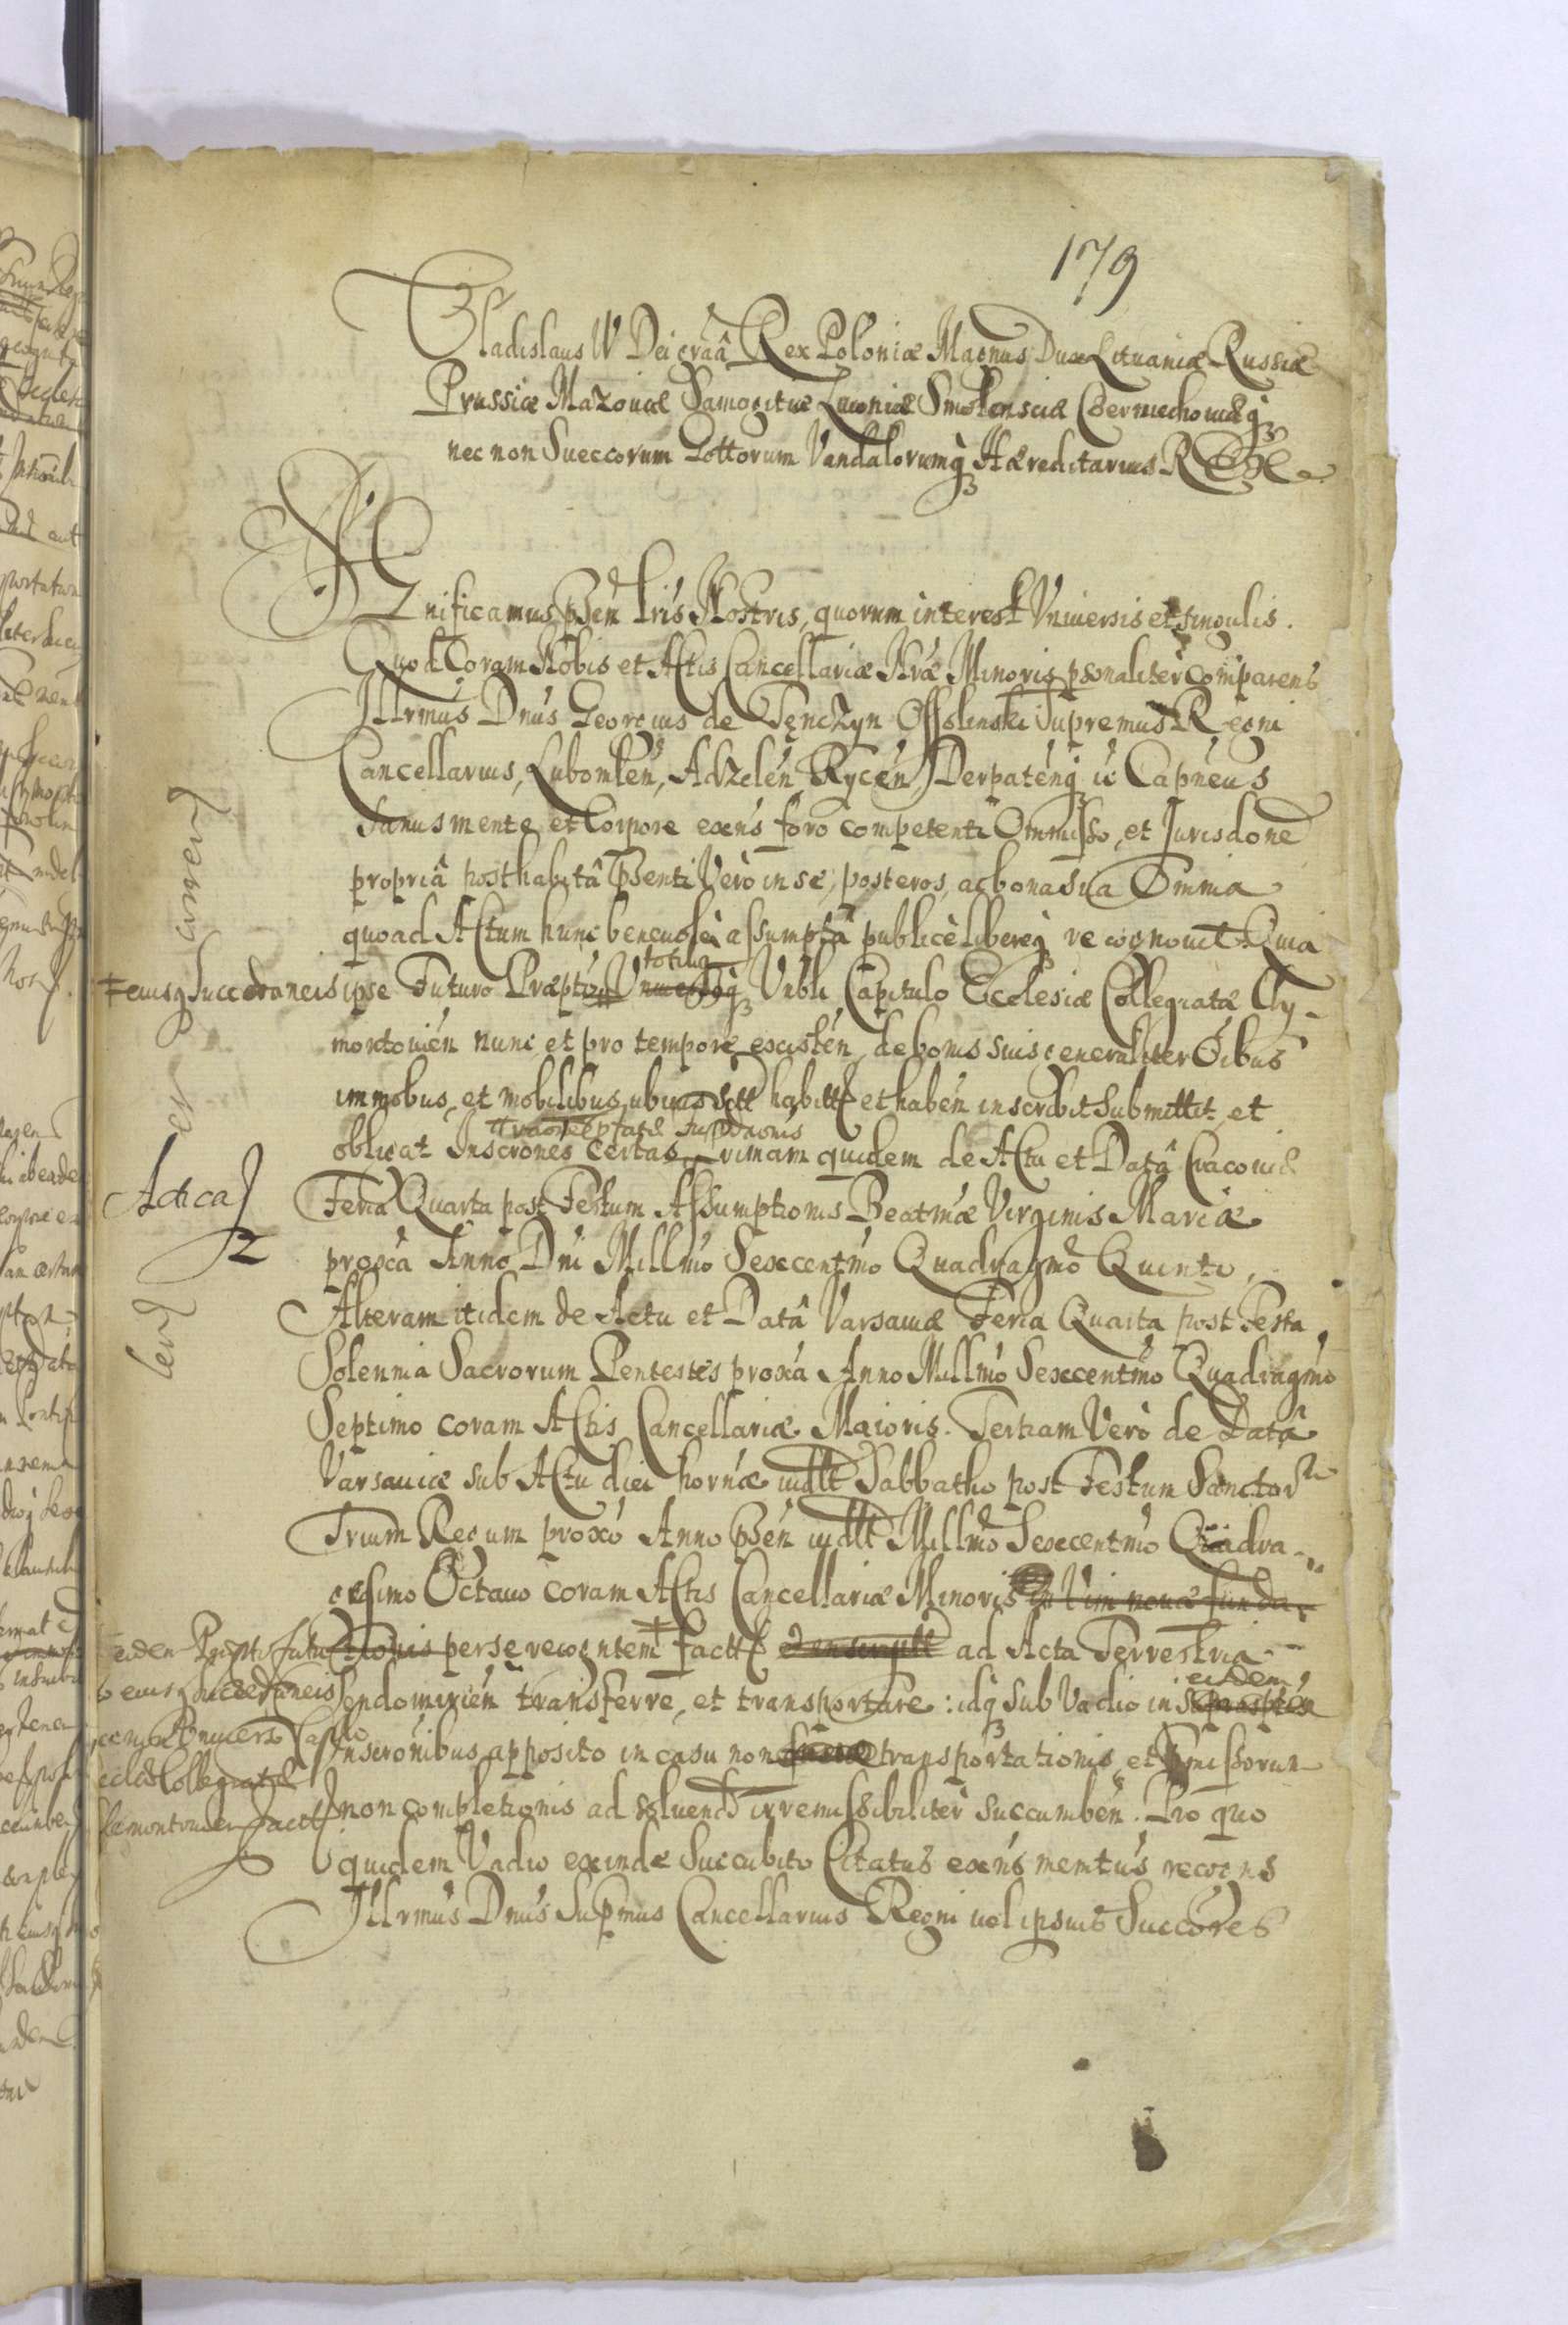 179
Vladislaus IV Dei graâ Rex Poloniæ Magnus Dux Lituaniæ Russiæ
Prussiæ Mazouiæ Samogitiæ Liuoniæ Smolensciæ Czerniechouiæq3
nec non Sueccorum Gottorum Vandalorumq3 Hæreditarius REX
Significamus p̃sen Lrĩs Nostris, quorum interest Vniuersis et singulis.
Quod Coram Nobis et Actis Cancellariæ Nrãe Minoris psonaliter comparens
Illrmus Dnus Georgius de Tęnczyn Ossolinski Supremus Regni
Cancellarius, Lubomlen, Adzelen, Rycen, Derpatenq3 &c Capneus
Sanus mente et Corpore exens foro competenti Ommisso, et Jurisdone
propriâ posthabitâ Psenti Vero in se, posteros, ac bona sua Omnia
quoad Actum hunc beneuole assumptâ publicè libereq3 recognouit. Quia
‡ eiusq3 Succedraneis ipse Futuro Præpto totiq3 Vnbli Capitulo Ecclesiæ Collegiatæ Cly-
montouien nunc et pro tempore existen, de bonis suis generaliter Oibus
immobus, et mobilibus, ubiuis sitt habitt et haben inscribit submittit, et
obligat Inscrones certas Primam quidem de Actu et Datâ Cracouiæ
Feria Quarta post Festum Assumptionis Beatmæ Virginis Mariæ
proxa Anno Dni Millmo Sexcentmo Quadragmo Quinto,
Alteram itidem de Actu et Datâ Varsauiæ Feria Quarta post Festa
Solennia Sacrorum Pentestes proxa Anno Millmo Sexcentmo Quadragmo
Septimo coram Actis Cancellariæ Maioris. Tertiam Vero de Datâ
Varsauiæ sub Actu diei hornæ uidlt Sabbatho post Festum Sanctor
Trium Regum proxo Anno Psen uidlt Millmo Sexcentmo Quadra-
gesimo Octauo coram Actis Cancellariæ Minoris In Vim nouæ funda-
tionis per se recogntem factt ad Acta Terrestria
Sendomirien transferre, et transportare: idq3 sub Vadio in eisdem
Inscronibus apposito in casu non transportationis, et Pmissorum
non completionis ad soluend irremissibiliter succumben. Pro quo
quidem Vadio exinde Succubito Citatus exens memtus recogns
Illrmus Dnus Supmus Cancellarius Regni uel ipsius Succores
Actica
eiden Præpto futu
eiusq3 Succedraneis
Collegiatæ
Clemontouien factt